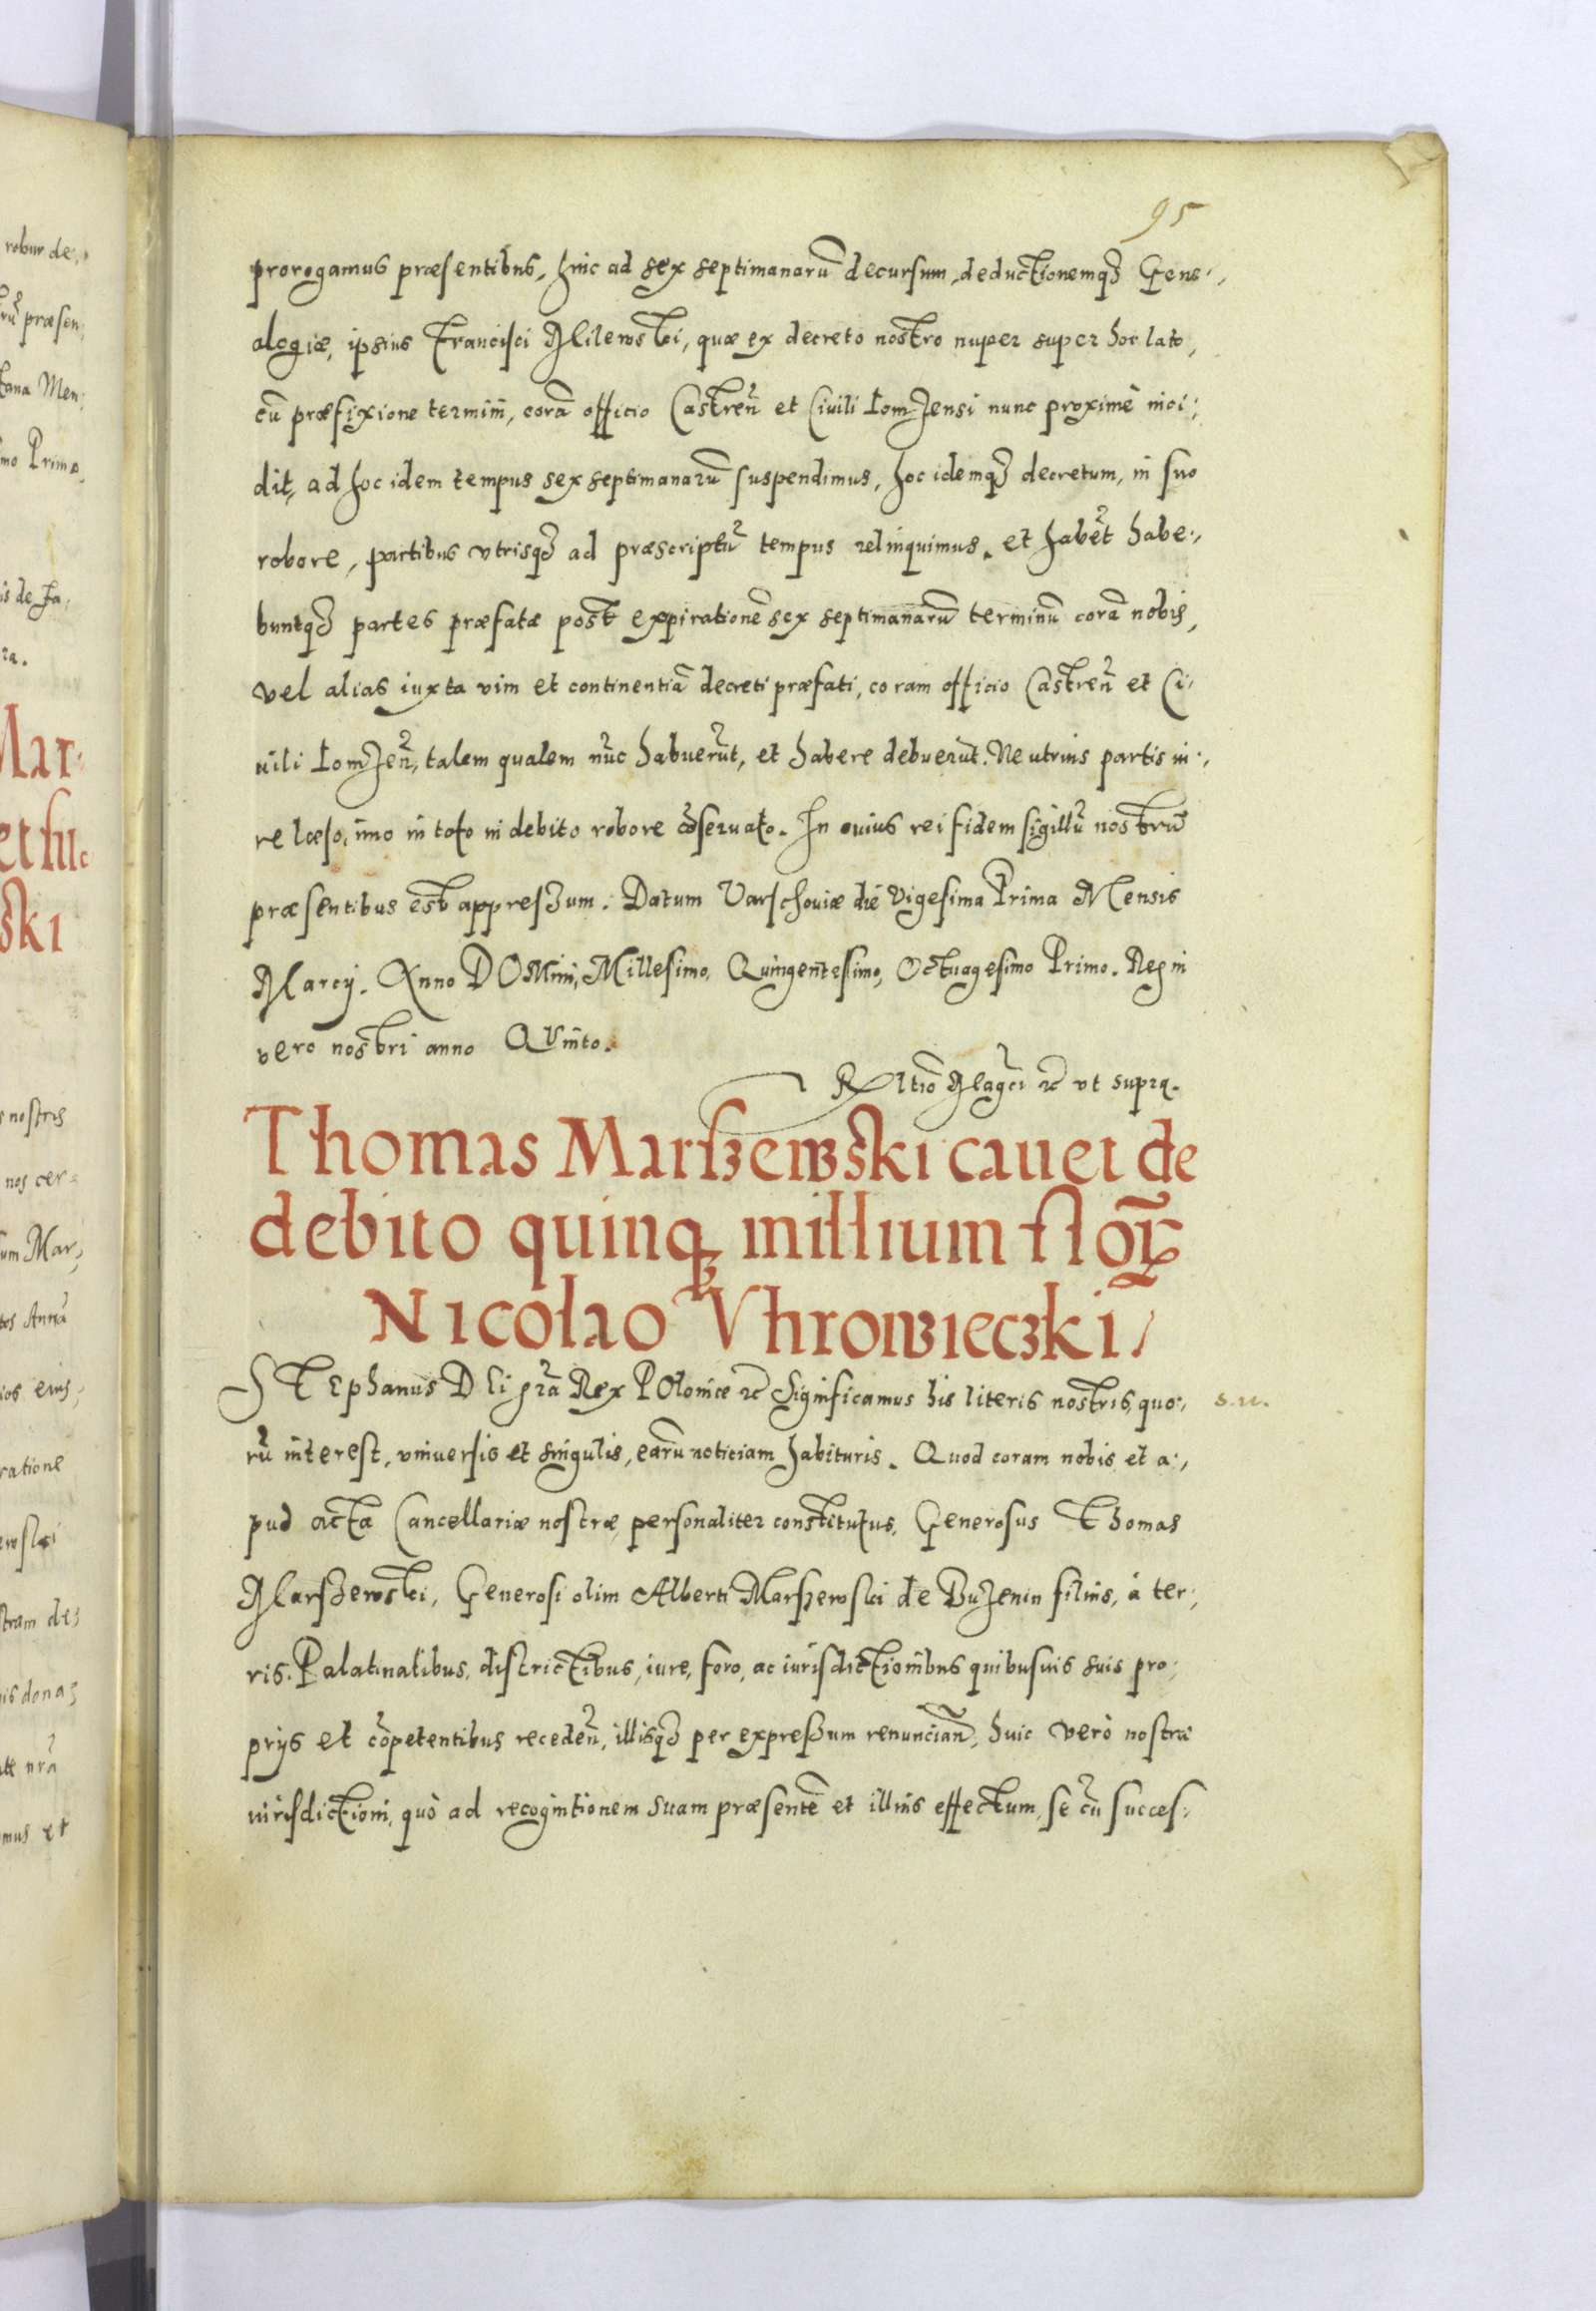 95
prorogamus præsentibus, hinc ad sex septimanarū decursum, deductionemq₃ Gene:,
alogiæ, ipsius Francisci Milewski, quæ ex decreto nostro nuper super hoc lato,
cū præfixione termini, corā officio Castreñ et Ciuili Lomzensi nunc proximè inci:,
dit, ad hoc idem tempus sex septimanarū suspendimus, hoc idemq₃ decretum, in suo
robore, partibus vtrisq₃ ad præscriptū tempus relinquimus. et habēt habe:,
buntq₃ partes præfatæ post expirationē sex septimanarū terminū corā nobis,
vel alias iuxta vim et continentiā decreti præfati, coram officio Castreñ et Ci:
uili Lomzeñ, talem qualem nūc habuerūt, et habere debuerūt. Neutrius partis iu:,
re læso, imo in toto in debito robore cōseruato. In cuius rei fidem sigillū nostrū
præsentibus est appressum. Datum Varschouiæ die Vigesima Prima Mensis
Marcij. Anno DOMini, Millesimo, Quingentesimo, Octuagesimo Primo. Regni
vero nostri anno Qvinto.
Rltio Magci ꝛc vt supra.
Thomas Marszewski cauet de
debito quinq₃ millium flor̄
Nicolao Vhrowieczki
STEphanus D Ei gr̄a Rex POloniæ ꝛc Significamus his literis nostris, quo:,
s. u.
rū interest, vniuersis et singulis, earū noticiam habituris. Quod coram nobis et a:,
pud acta Cancellariæ nostræ personaliter constitutus, Generosus Thomas
Marszewski, Generosi olim Alberti Marszewski de Buzenin filius, à ter:
ris. Palatinatibus, districtibus, iure, foro, ac iurisdictionibus quibusuis suis pro:
prijs et cōpetentibus recedeñ, illisq₃ per expressum renunciañ, huic verò nostræ
iurisdictioni, quò ad recognitionem suam præsentē et illius effectum, se cū succes: